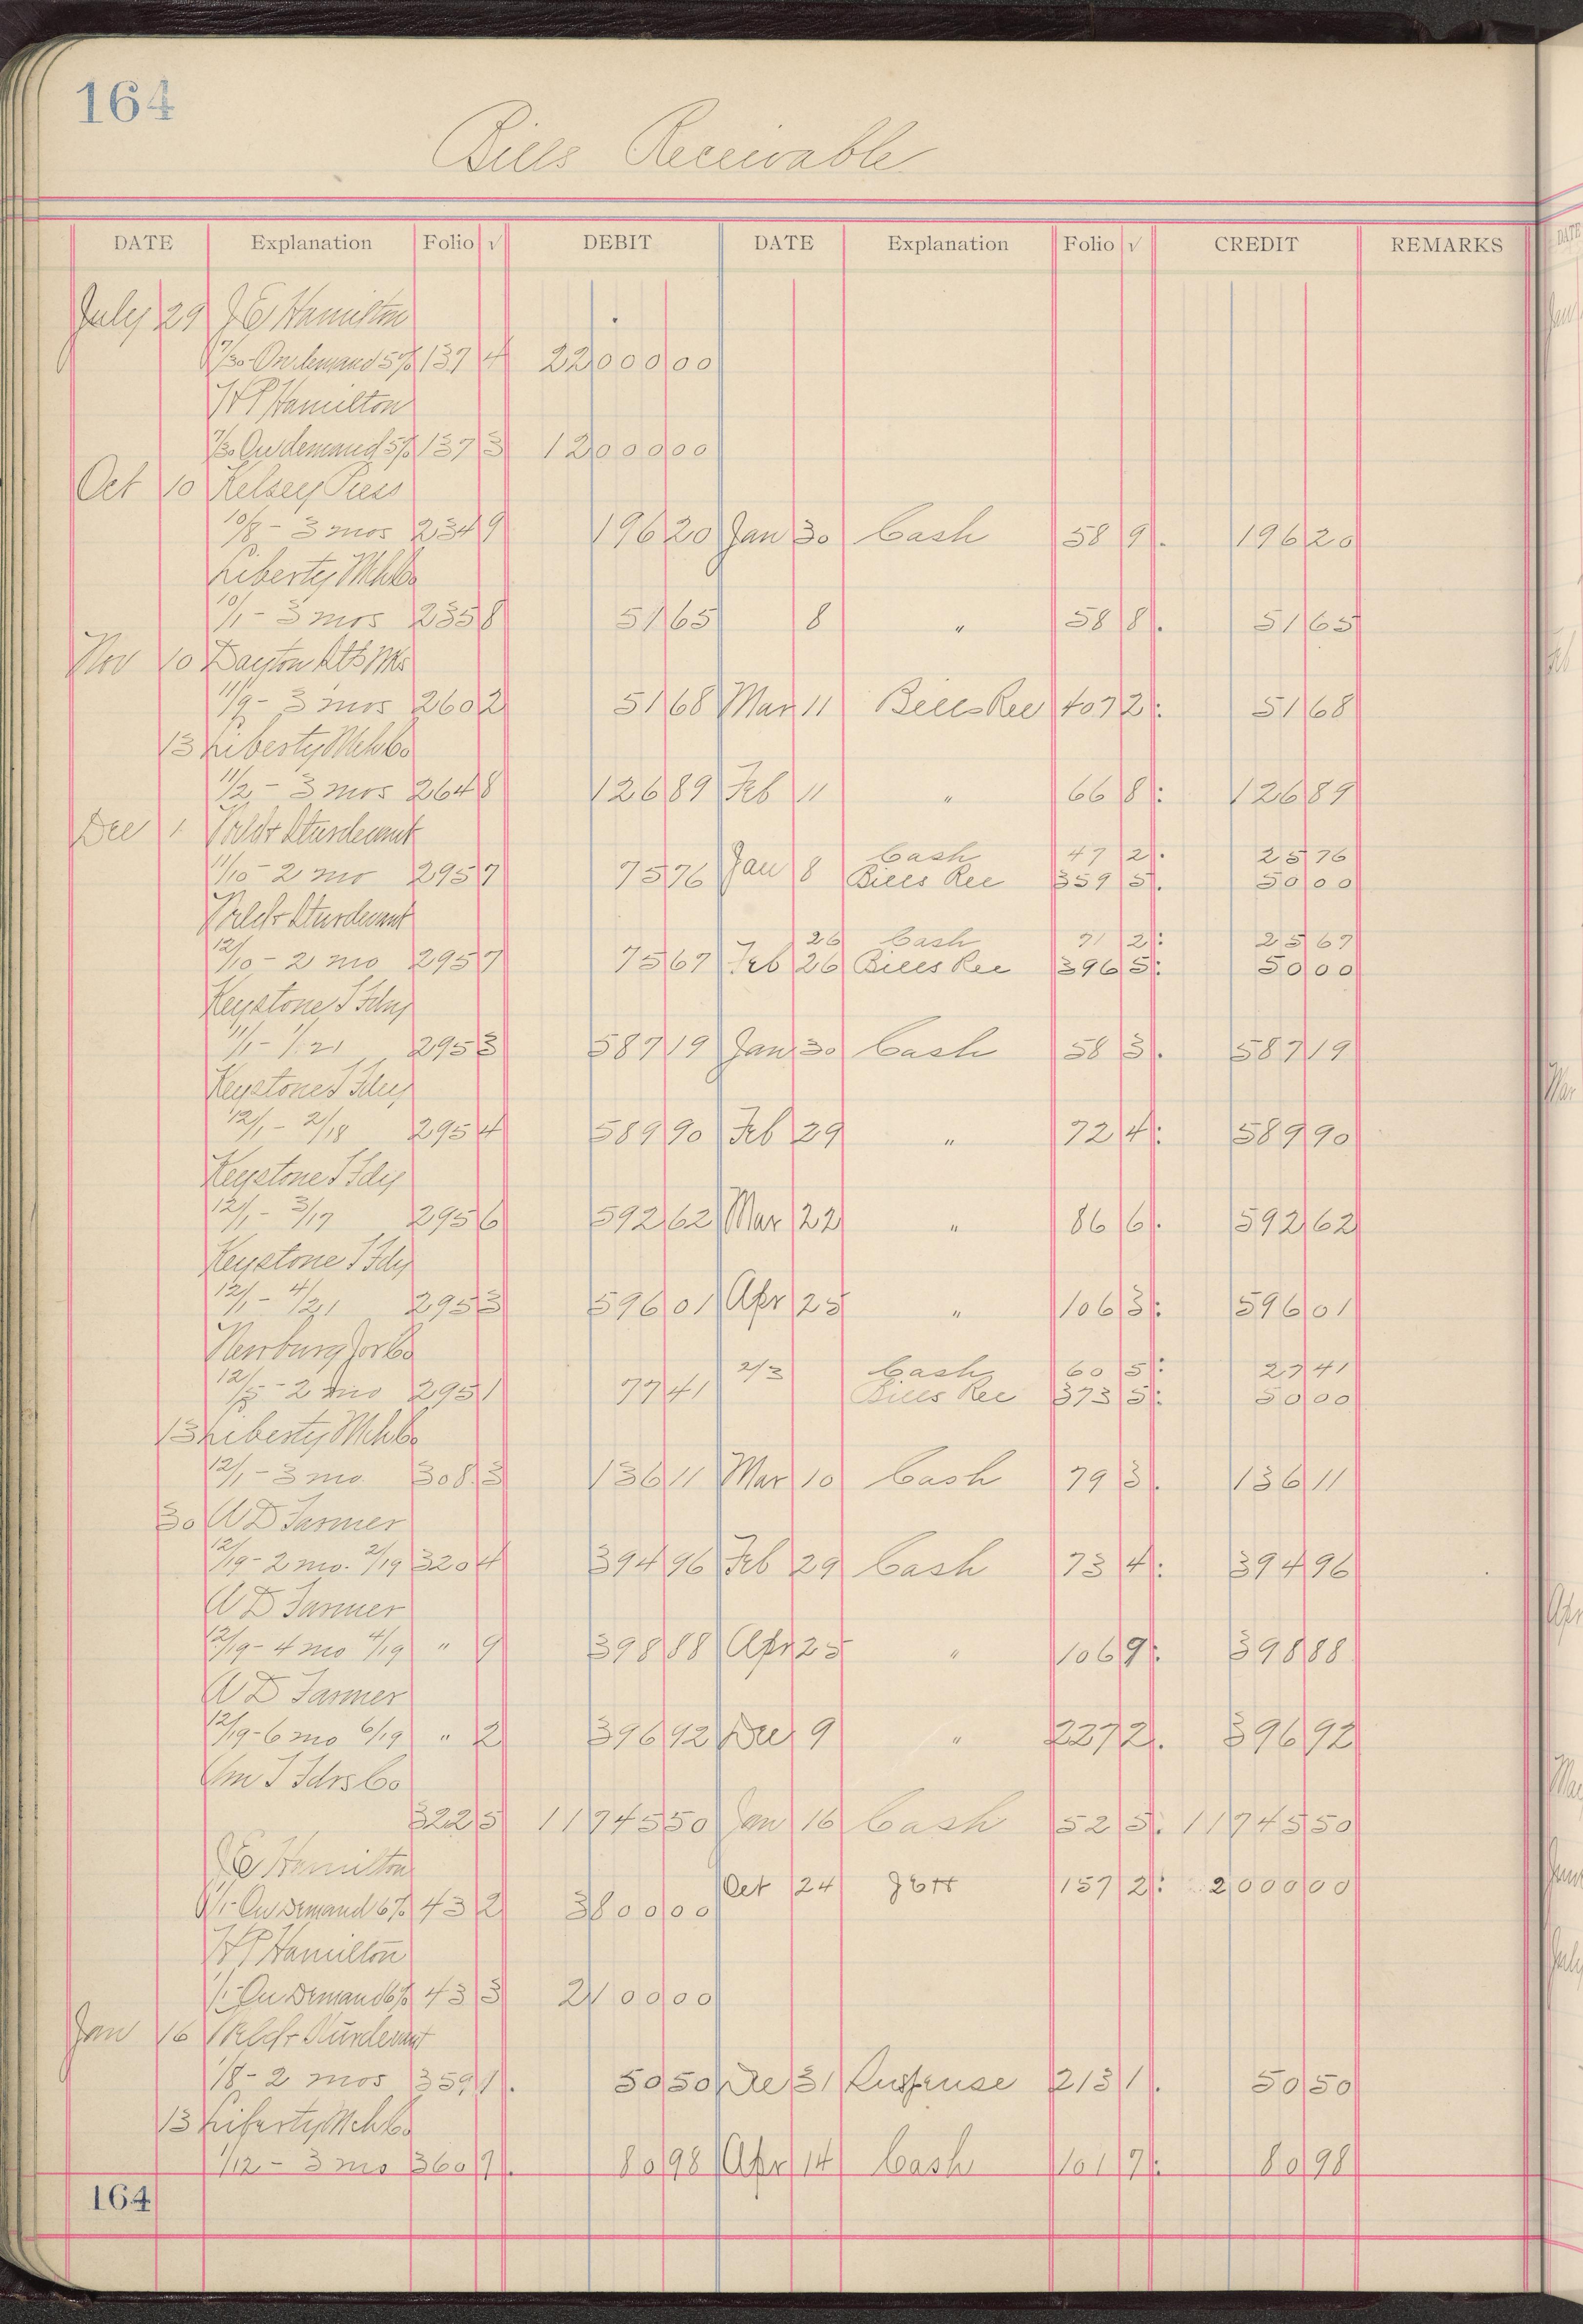 164
Bills Receivable
DATE Explanation Folio √ DEBIT DATE Explanation Folio √ CREDIT REMARKS
July 29 J E Hamilton
7/30 - On demand 5% 137 4 22 000 00
H P Hamilton
7/30 On demand 5% 137 3 12 000 00
Oct 10 Kelsey Press
10/8 - 3 mos 234 9 196 20 Jan 30 Cash 58 9 196 20
Liberty Mch Co
10/1 - 3 mos 235 8 51 65 8 " 58 8 51 65
Nov 10 Dayton
11/9 - 3 mos 260 2 51 68 Mar 11 Bills Rec 407 2 51 68
13 Liberty Mch Co
11/2 - 3 mos 264 8 126 89 Feb 11 " 66 8 126 89
Dec 1
11/10 - 2 mo 295 7 75 76 Jan 8 Cash 47 2 25 76
Bills Rec 359 5 50 00
26 Cash 71 2 25 67
12/10 - 2 mo 295 7 75 67 Feb 26 Bills Rec 396 5 50 00
Keystone T Fdy
11/1 - 1/21 295 3 587 19 Jan 30 Cash 58 3 587 19
Keystone T Fdy
12/1 - 2/18 295 4 589 90 Feb 29 " 72 4 589 90
Keystone T Fdy
12/1 - 3/17 295 6 592 62 Mar 22 " 86 6 592 62
Keystone T Fdy
12/1 - 4/21 295 3 596 01 Apr 25 " 106 3 596 01
Newburg Jor Co
2/3 Cash 60 5 27 41
12/5 - 2 mo 295 1 77 41 Bills Rec 373 5 50 00
13 Liberty Mch Co
12/1 - 3 mo 308 3 136 11 Mar 10 Cash 79 3 136 11
30 A D Farmer
12/19 - 2 mo. 2/19 320 4 394 96 Feb 29 Cash 73 4 394 96
A D Farmer
12/19 - 4 mo 4/19 " 9 398 88 Apr 25 " 106 9 398 88
A D Farmer
12/19 - 6 mo 6/19 " 2 396 92 Dec 9 " 227 2 396 92
Am T Fdrs Co
322 5 11 745 50 Jan 16 Cash 52 5 11 745 50
J E Hamilton
Oct 24 157 2 2 000 00
1/1 - On Demand 6% 43 2 3 800 00
H P Hamilton
1/1 - On Demand 6% 43 3 2 100 00
Jan 16
1/8 - 2 mos 359 1 50 50 Dec 31 Suspense 213 1 50 50
13 Liberty Mch Co
1/12 - 3 mo 360 7 80 98 Apr 14 Cash 101 7 80 98
164